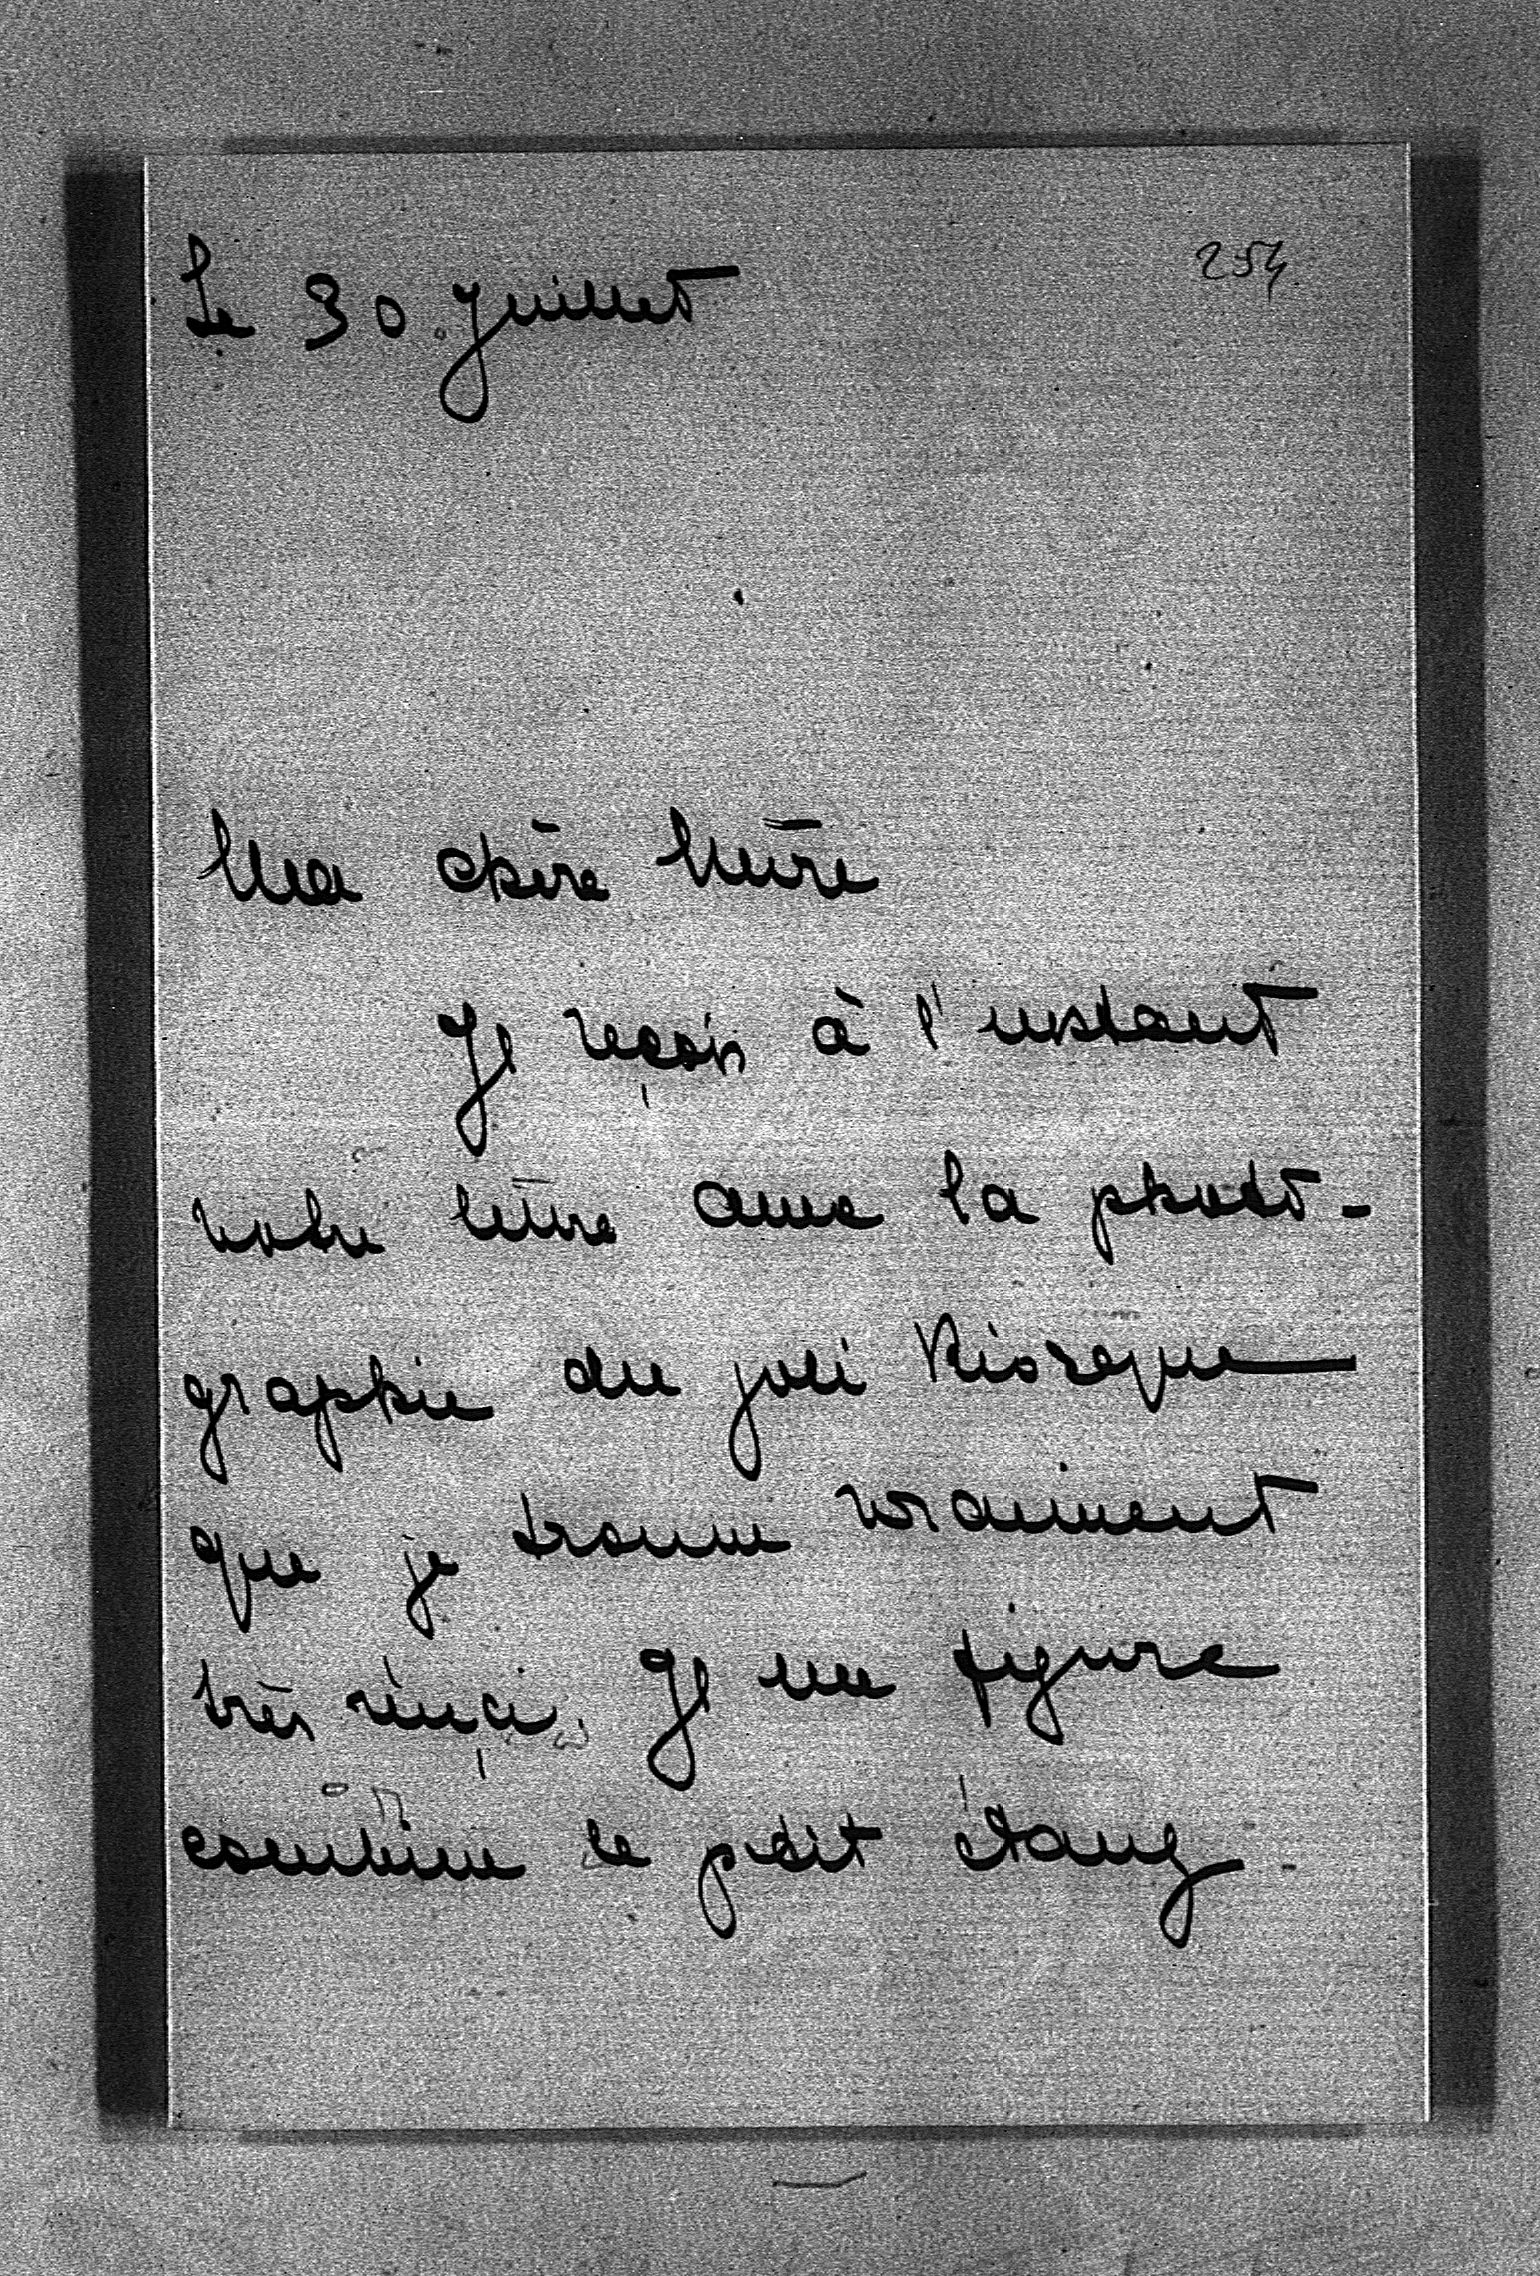 254
Le 30 Juillet
Ma chère Mère
Je reçois à l'instant
votre lettre avec la photo-
graphie du joli Kiosque
que je trouve vraiment
très réussi. Je me figure
combien le petit étang